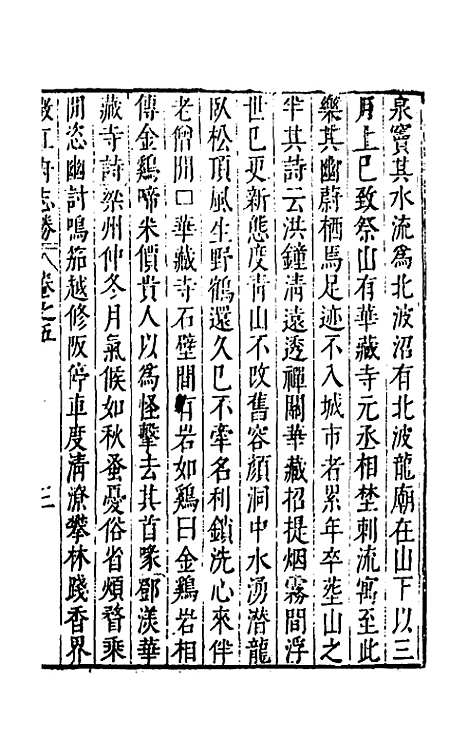 泉竇其水流爲北波沼有北波龍廟在山下以三
月上巳致祭山有華藏寺元丞相埜剌流寓至此
樂其幽蔚栖馬足迹不入城市者累年卒塟山之
半其詩云洪鐘清遠透禪關華藏招提烟霧間浮
世已更新態度青山不改舊容顏洞中水湧潛龍
臥松頂風生野鶴還久已不牽名利鎖洗心來伴
老僧閒口華藏寺石壁間有岩如鷄曰金鷄岩相
傳金鷄啼米價貴人以爲怪擊去其首郡鄧渼華
藏寺詩梁州仲冬月氣候如秋蚤憂俗省煩瞀乘
閒恣幽討鳴笳越修阪停車度清潦攀林踐香界
澂江府志勝 卷之五 三